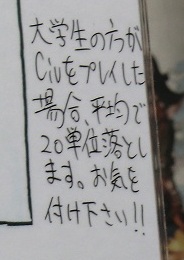 大学生の方が
Civをプレイした
場合、平均で
20単位落とし
ます。お気を
付け下さい!!